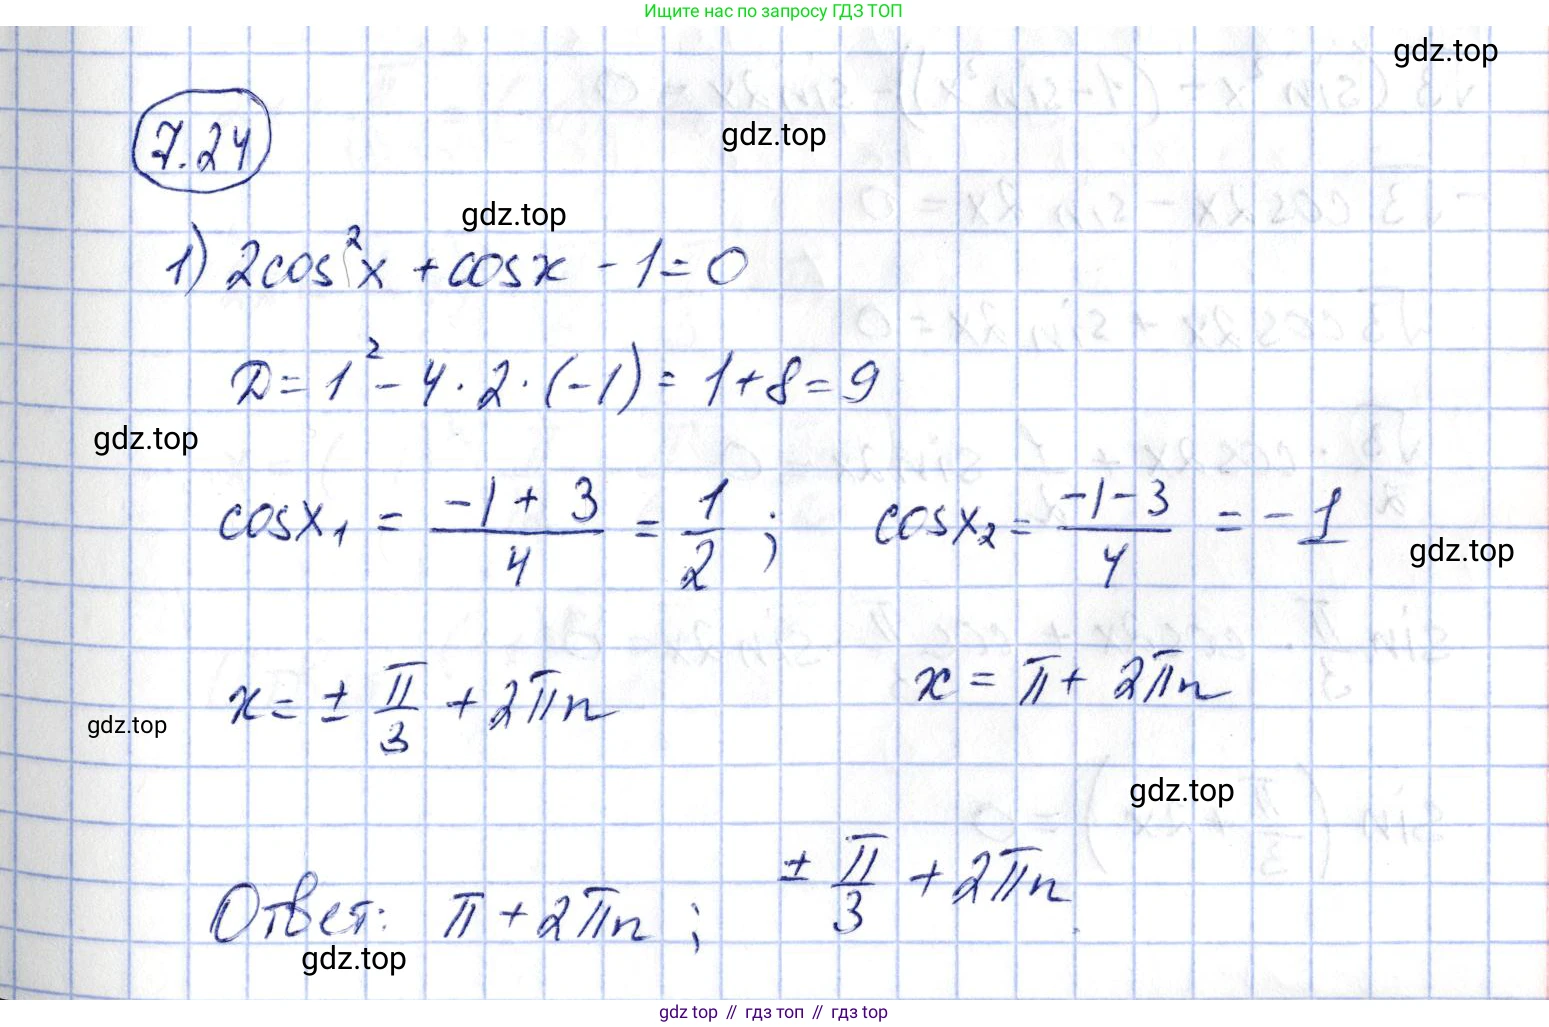 Ищите нас по запросу ГДЗ ТОП
gdz.top
7.24
gdz.top
gdz.top
1) 2cos²x + cosx - 1 = 0
D = 1² - 4 · 2 · (-1) = 1 + 8 = 9
gdz.top
cosx₁ = (-1 + 3)/4 = 1/2 ; cosx₂ = (-1 - 3)/4 = -1
gdz.top
x = ± π/3 + 2πn x = π + 2πn
gdz.top
gdz.top
Ответ: π + 2πn ; ± π/3 + 2πn
gdz.top
gdz top // гдз топ // гдз top